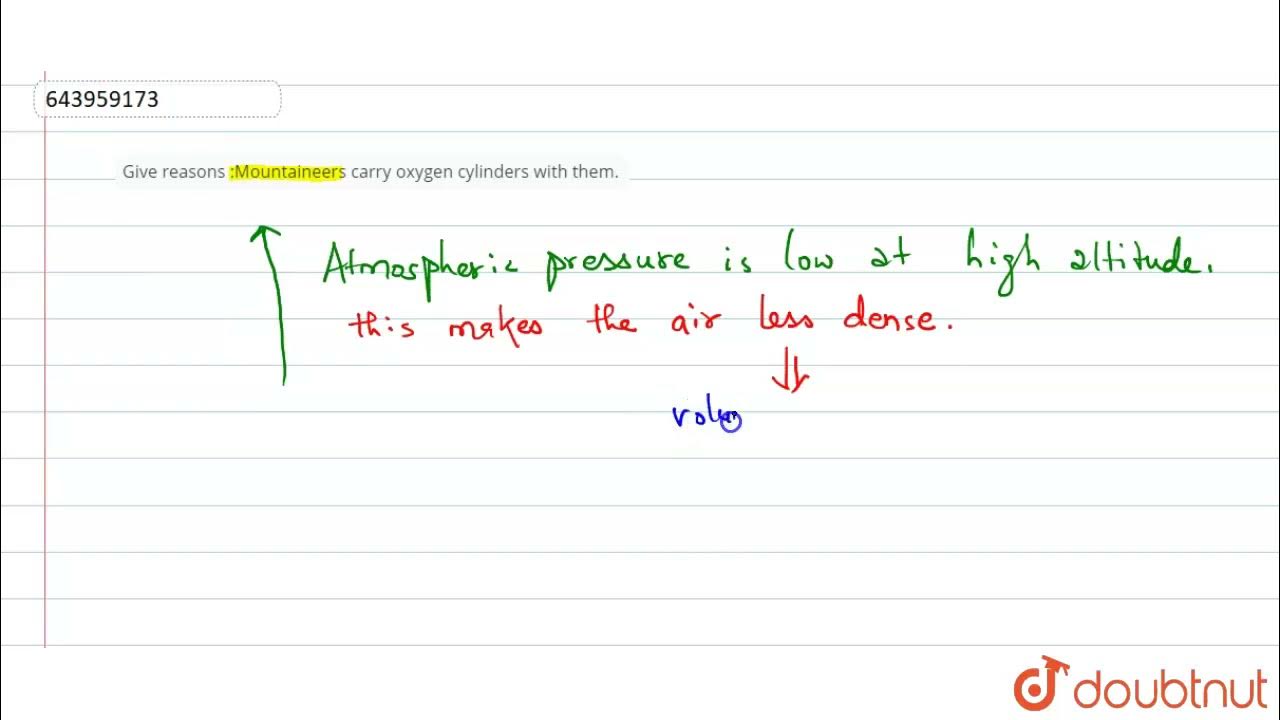 643959173
Give reasons :Mountaineers carry oxygen cylinders with them.
Atmospheric pressure is low at high altitude.
this makes the air less dense.
doubtnut